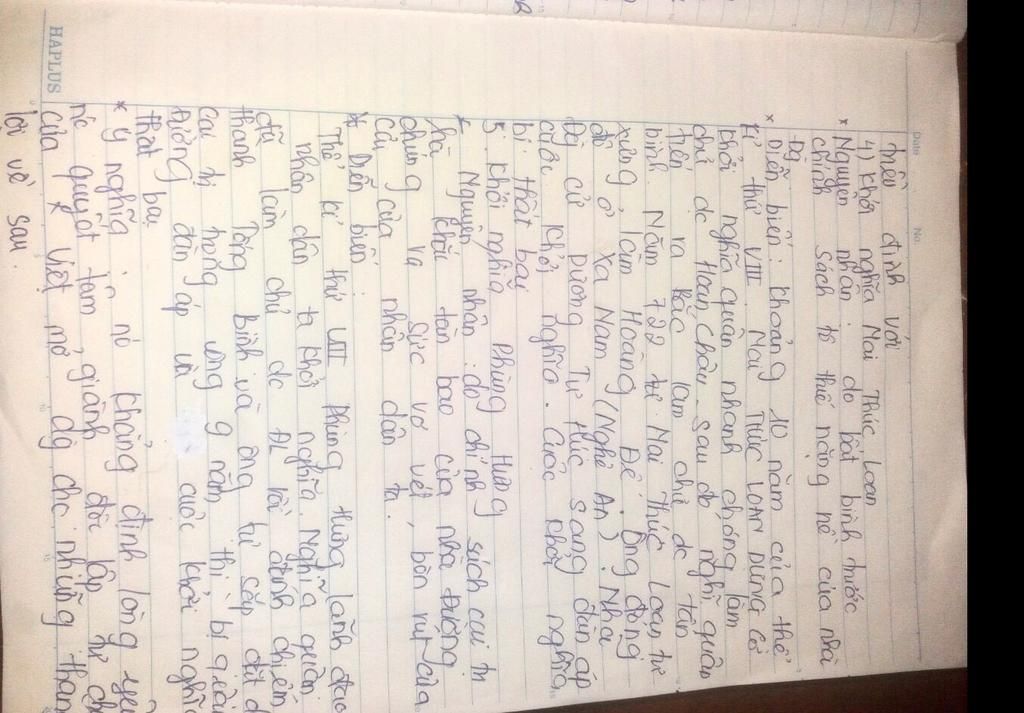 HAPLUS
Date No.
triều đình với
4) Khởi nghĩa Mai Thúc Loan
* Nguyên nhân: do bất bình trước
chính sách tô thuế nặng nề của nhà
Đg
* Diễn biến: khoảng 10 năm của thế
kỉ thứ VIII Mai THÚC LOAN DỰNG Cờ
khởi nghĩa quân nhanh chóng làm
chủ dc Hoan Châu. Sau đó nghĩ quân
tiến ra Bắc làm chủ dc tân
bình. Năm 722 Mai Thúc Loan tự
xưng làm Hoàng Đế. Ông đóng
đô ở Xa Nam (Nghệ An). Nhà
Đg cử Dương Tư Húc sang đàn áp
cuộc khởi nghĩa. Cuộc khởi nghĩa
bị thất bại
5. Khởi nghĩa Phùng Hưng
* Nguyên nhân: do chính sách cai tr
hà khắc tàn bạo của nhà Đường
chung và sức vơ vét, bòn rút của
cải của nhân dân ta.
* Diễn biến:
Thế kỉ thứ VIII Phùng Hưng lãnh đạo
nhân dân ta khởi nghĩa. Nghĩa quân
đã làm chủ dc ĐL rồi đánh chiếm
thành Tống Bình và ông tự sắp đặt
cai trị trong vòng 9 năm thì bị
Đường đàn áp cuộc khởi nghĩ
thất bại
* Ý nghĩa: nó khẳng định lòng yêu
nc quyết tâm giành độc lập tự
của Việt mở đg cho những thắn
lợi về sau.